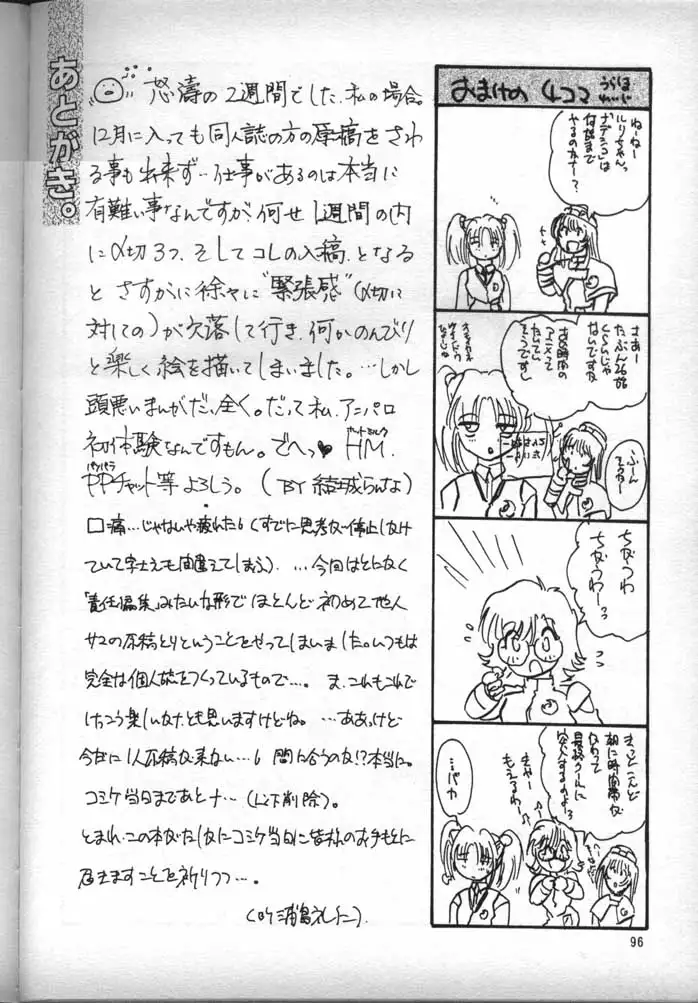 あとがき。
怒濤の2週間でした、私の場合。
12月に入っても同人誌の方の原稿をさわ
る事も出来ず…仕事があるのは本当に
有難い事なんですが、何せ1週間の内
に〆切3つ、そしてコレの入稿、となる
と さすがに徐々に“緊張感”(〆切に
対しての)が欠落して行き、何かのんびり
と楽しく絵を描いてしまいました。…しかし
頭悪いまんがだ、全く。だって私、アニパロ
初体験なんですもん。でへっ♥ HM、
ホットミルク
パイパラ
PPチャット等よろしう。(BY 結城らんな)
口痛…じゃないや疲れた
(すでに思考が停止しかけ
ていて字さえも間違えてしまふ)…今回はとにかく
「責任編集」みたいな形でほとんど初めて他人
サマの原稿とりということをやってしまいました。いつもは
完全な個人誌をつくっているもので…。ま、これもこれで
けっこう楽しいかとも思いますけどね。…ああっけど
今だに1人原稿が来ない…
間に合うのか!?本当に。
コミケ当日まであと十…(以下削除)。
ともあれ、この本がたしかにコミケ当日に皆様のお手もとに
届きますことを祈りつつ…。
おまけの 4コマ
ねーねー
ルリちゃんっ
ナデシコは
何話まで
やるのかなー?
さあー
たぶん26話
くらいじゃ
ないですか
アニメって
そうです
ふーん
ちがうわ
ちがうわーっ
きっとこんど
朝に時間帯が
かわって
きゃー
もえるわー
…バカ
96